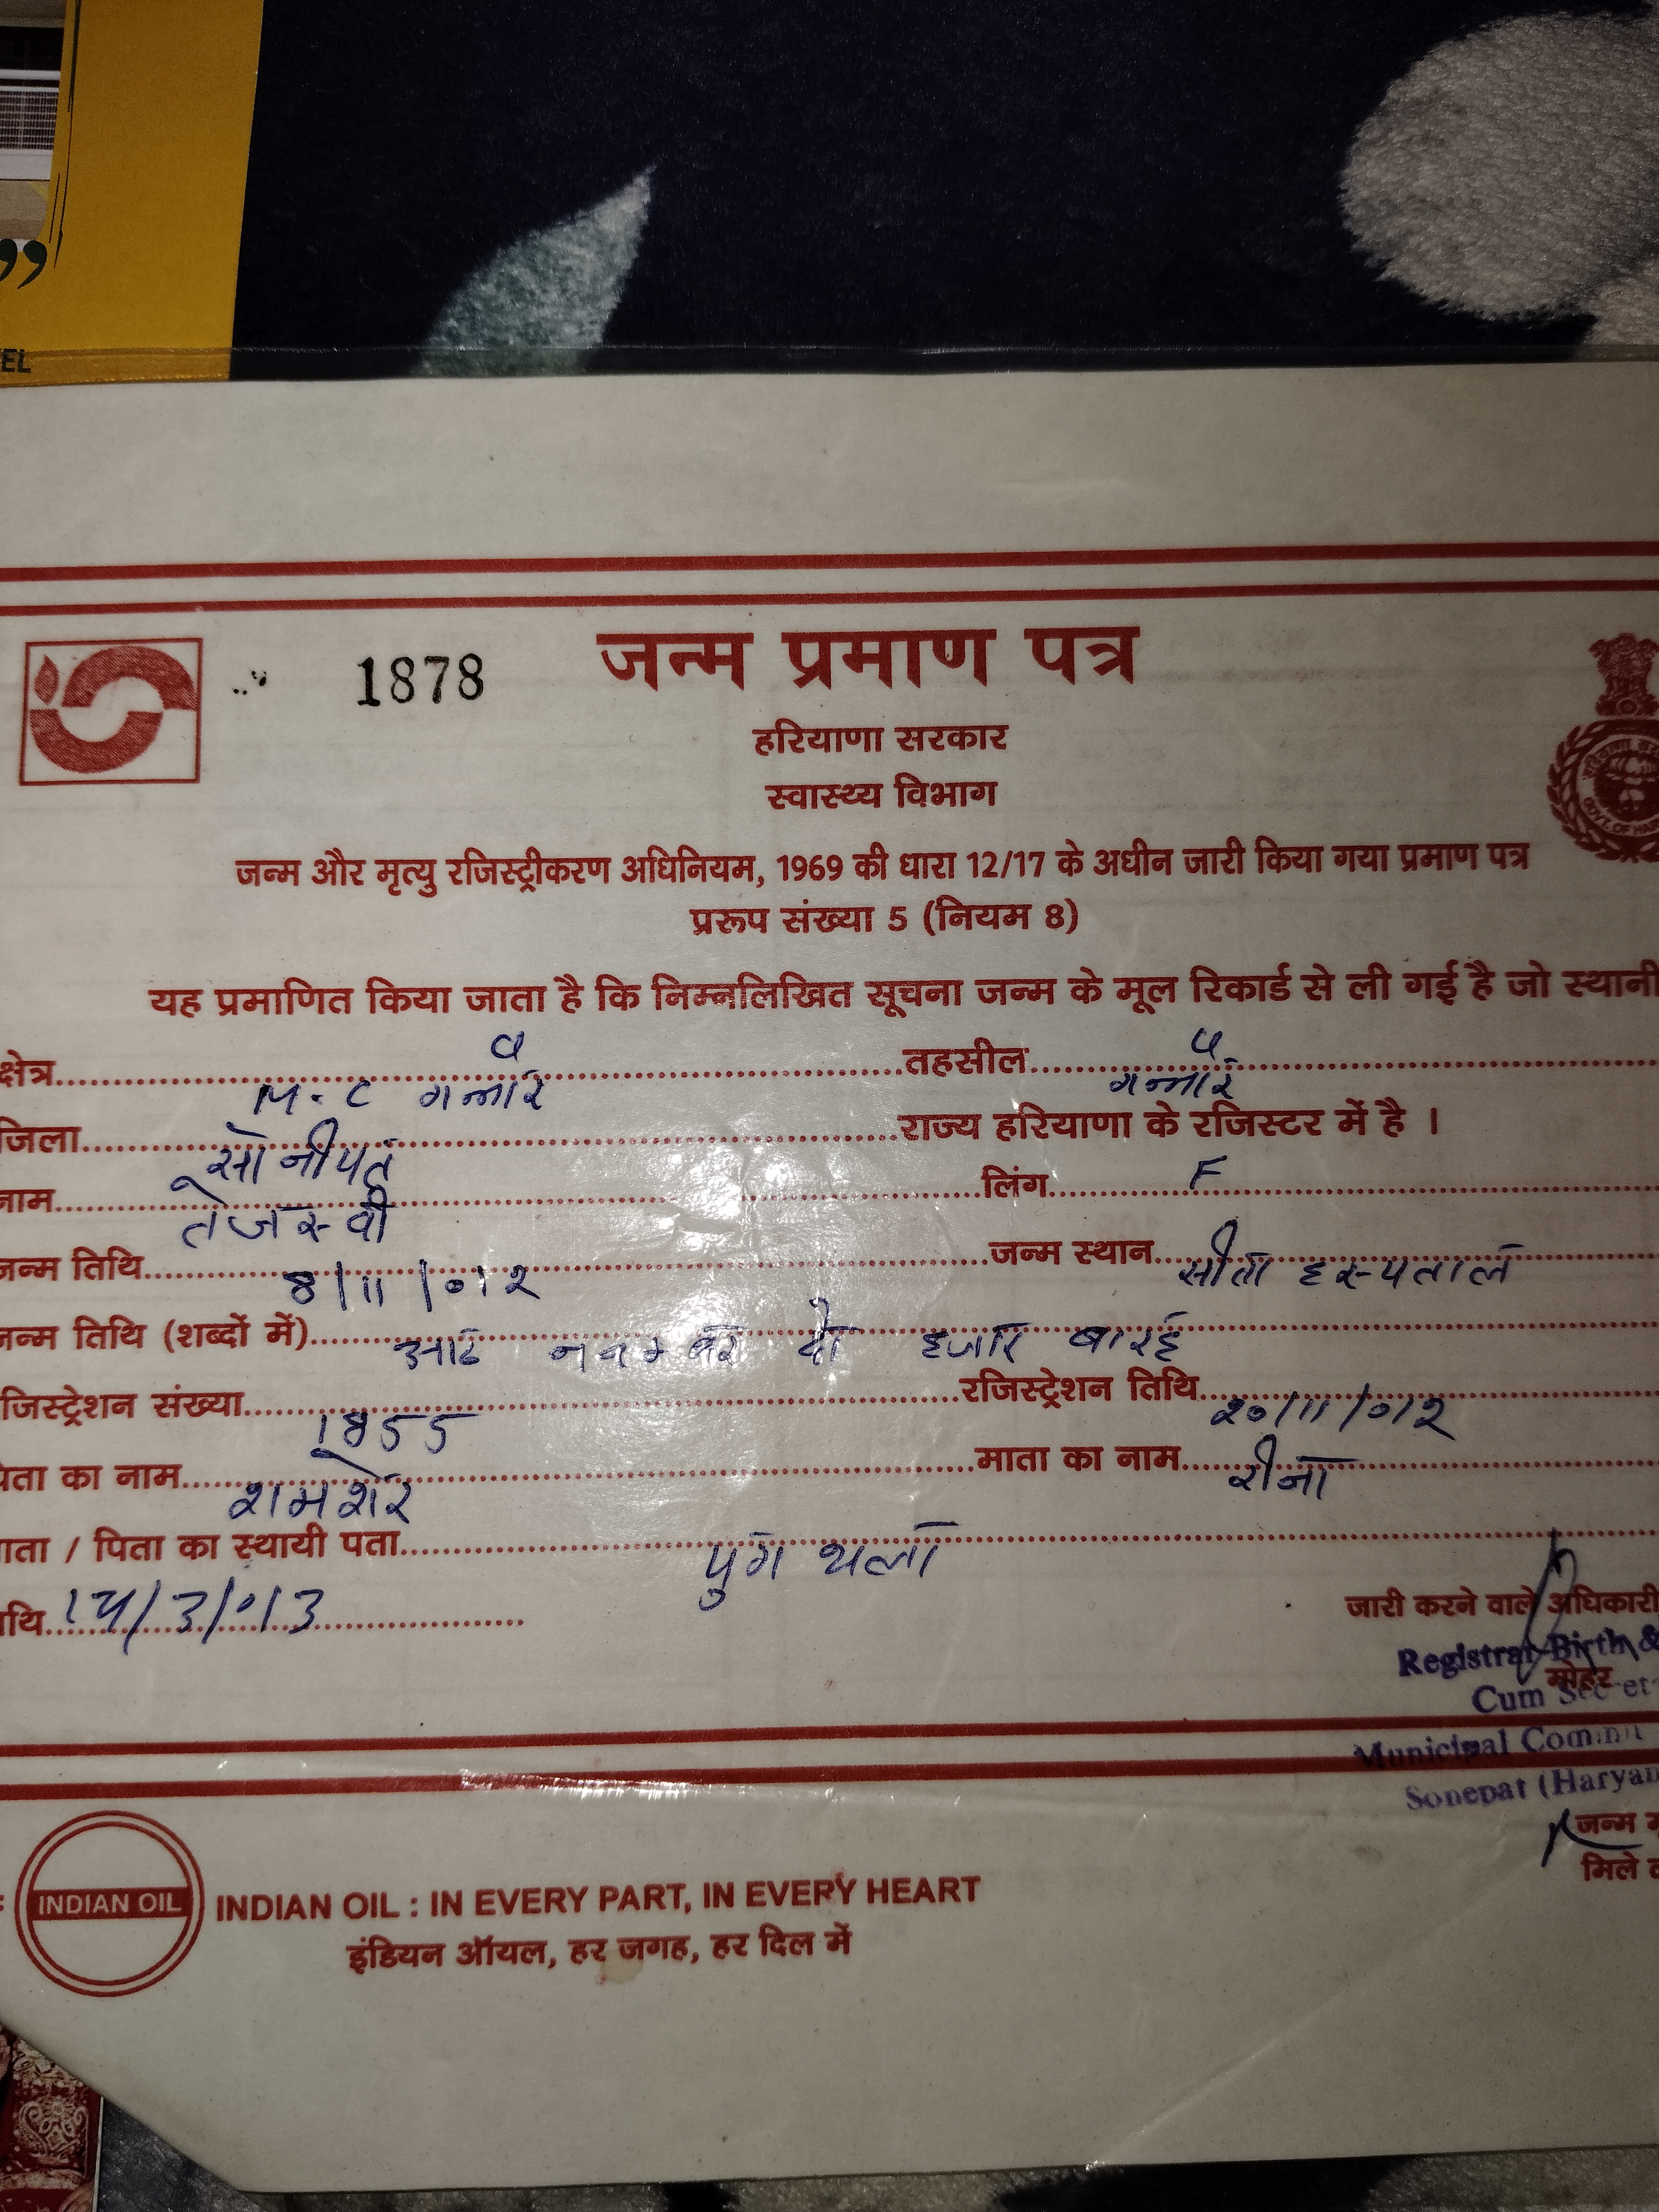 ”
EL
1878
जन्म प्रमाण पत्र
हरियाणा सरकार
स्वास्थ्य विभाग
जन्म और मृत्यु रजिस्ट्रीकरण अधिनियम, 1969 की धारा 12/17 के अधीन जारी किया गया प्रमाण पत्र
प्ररूप संख्या 5 (नियम 8)
यह प्रमाणित किया जाता है कि निम्नलिखित सूचना जन्म के मूल रिकार्ड से ली गई है जो स्थानी
क्षेत्र M.C गन्नौर तहसील गन्नौर
जिला सोनीपत राज्य हरियाणा के रजिस्टर में है ।
नाम तेजस्वी लिंग F
जन्म तिथि 8/11/०१२ जन्म स्थान हस्पताल
जन्म तिथि (शब्दों में) आठ नवम्बर दो हजार बारह
जिस्ट्रेशन संख्या 1855 रजिस्ट्रेशन तिथि २०/11/०१२
पिता का नाम शमशेर माता का नाम रीना
माता / पिता का स्थायी पता पुगथला
थि /3/013
जारी करने वाले अधिकारी
Registrar Birth &
मोहर
Cum Secret
Municipal Commit
Sonepat (Haryan
जन्म
मिले
INDIAN OIL
INDIAN OIL : IN EVERY PART, IN EVERY HEART
इंडियन ऑयल, हर जगह, हर दिल में